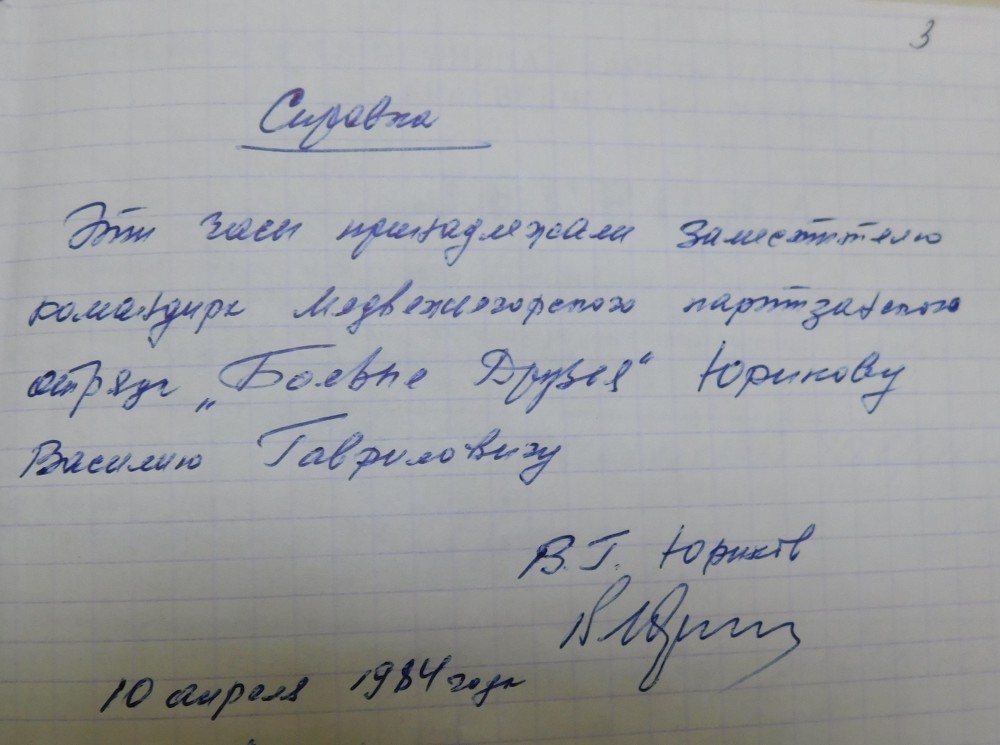 3
Справка
Эти часы принадлежали заместителю
командира Медвежьегорского партизанского
отряда „Боевые Друзья“ Юрикову
Василию Гавриловичу
В.Г. Юриков
10 апреля 1984 года